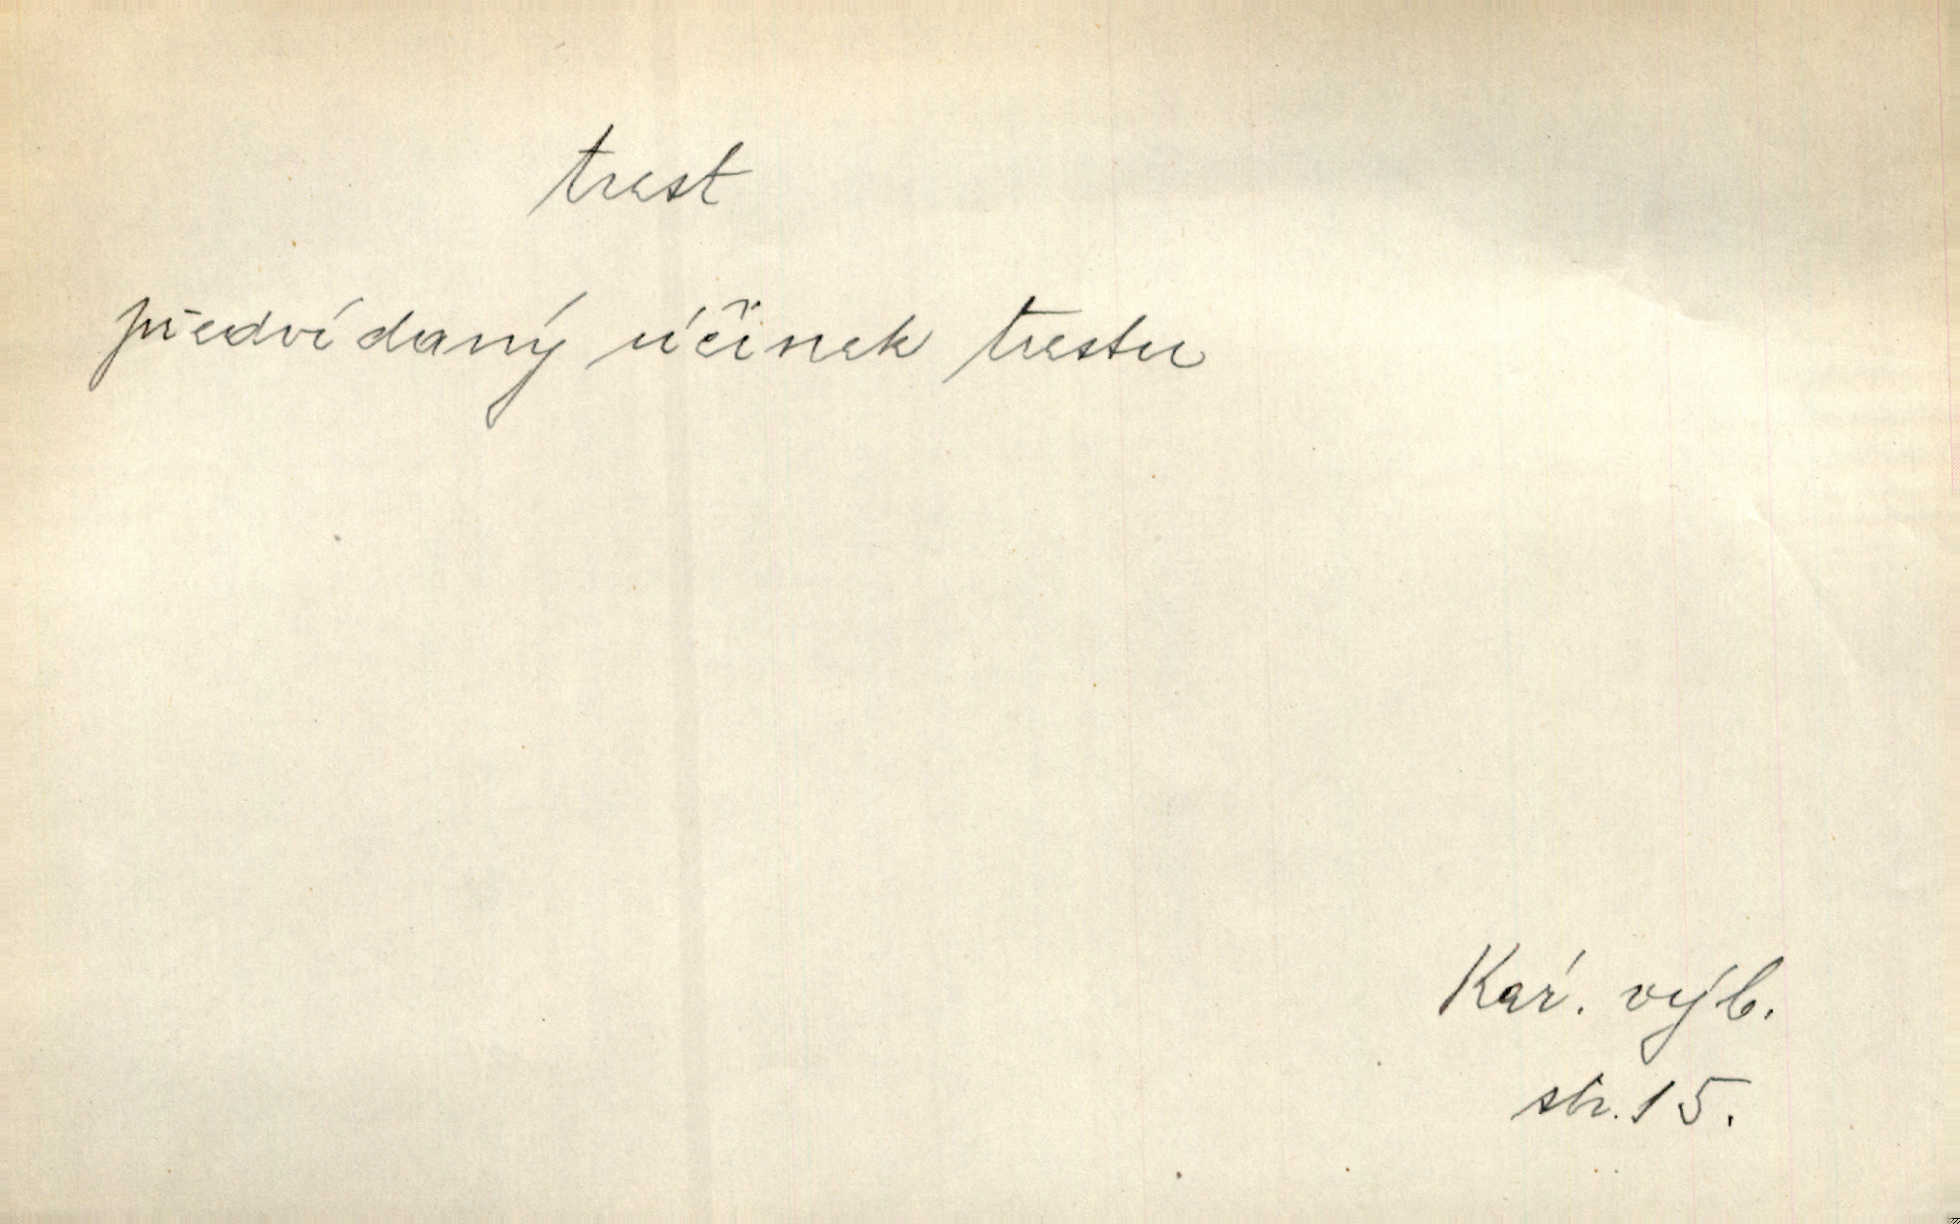 trest
předvídaný účinek trestu
Kař. výb.
str. 15.